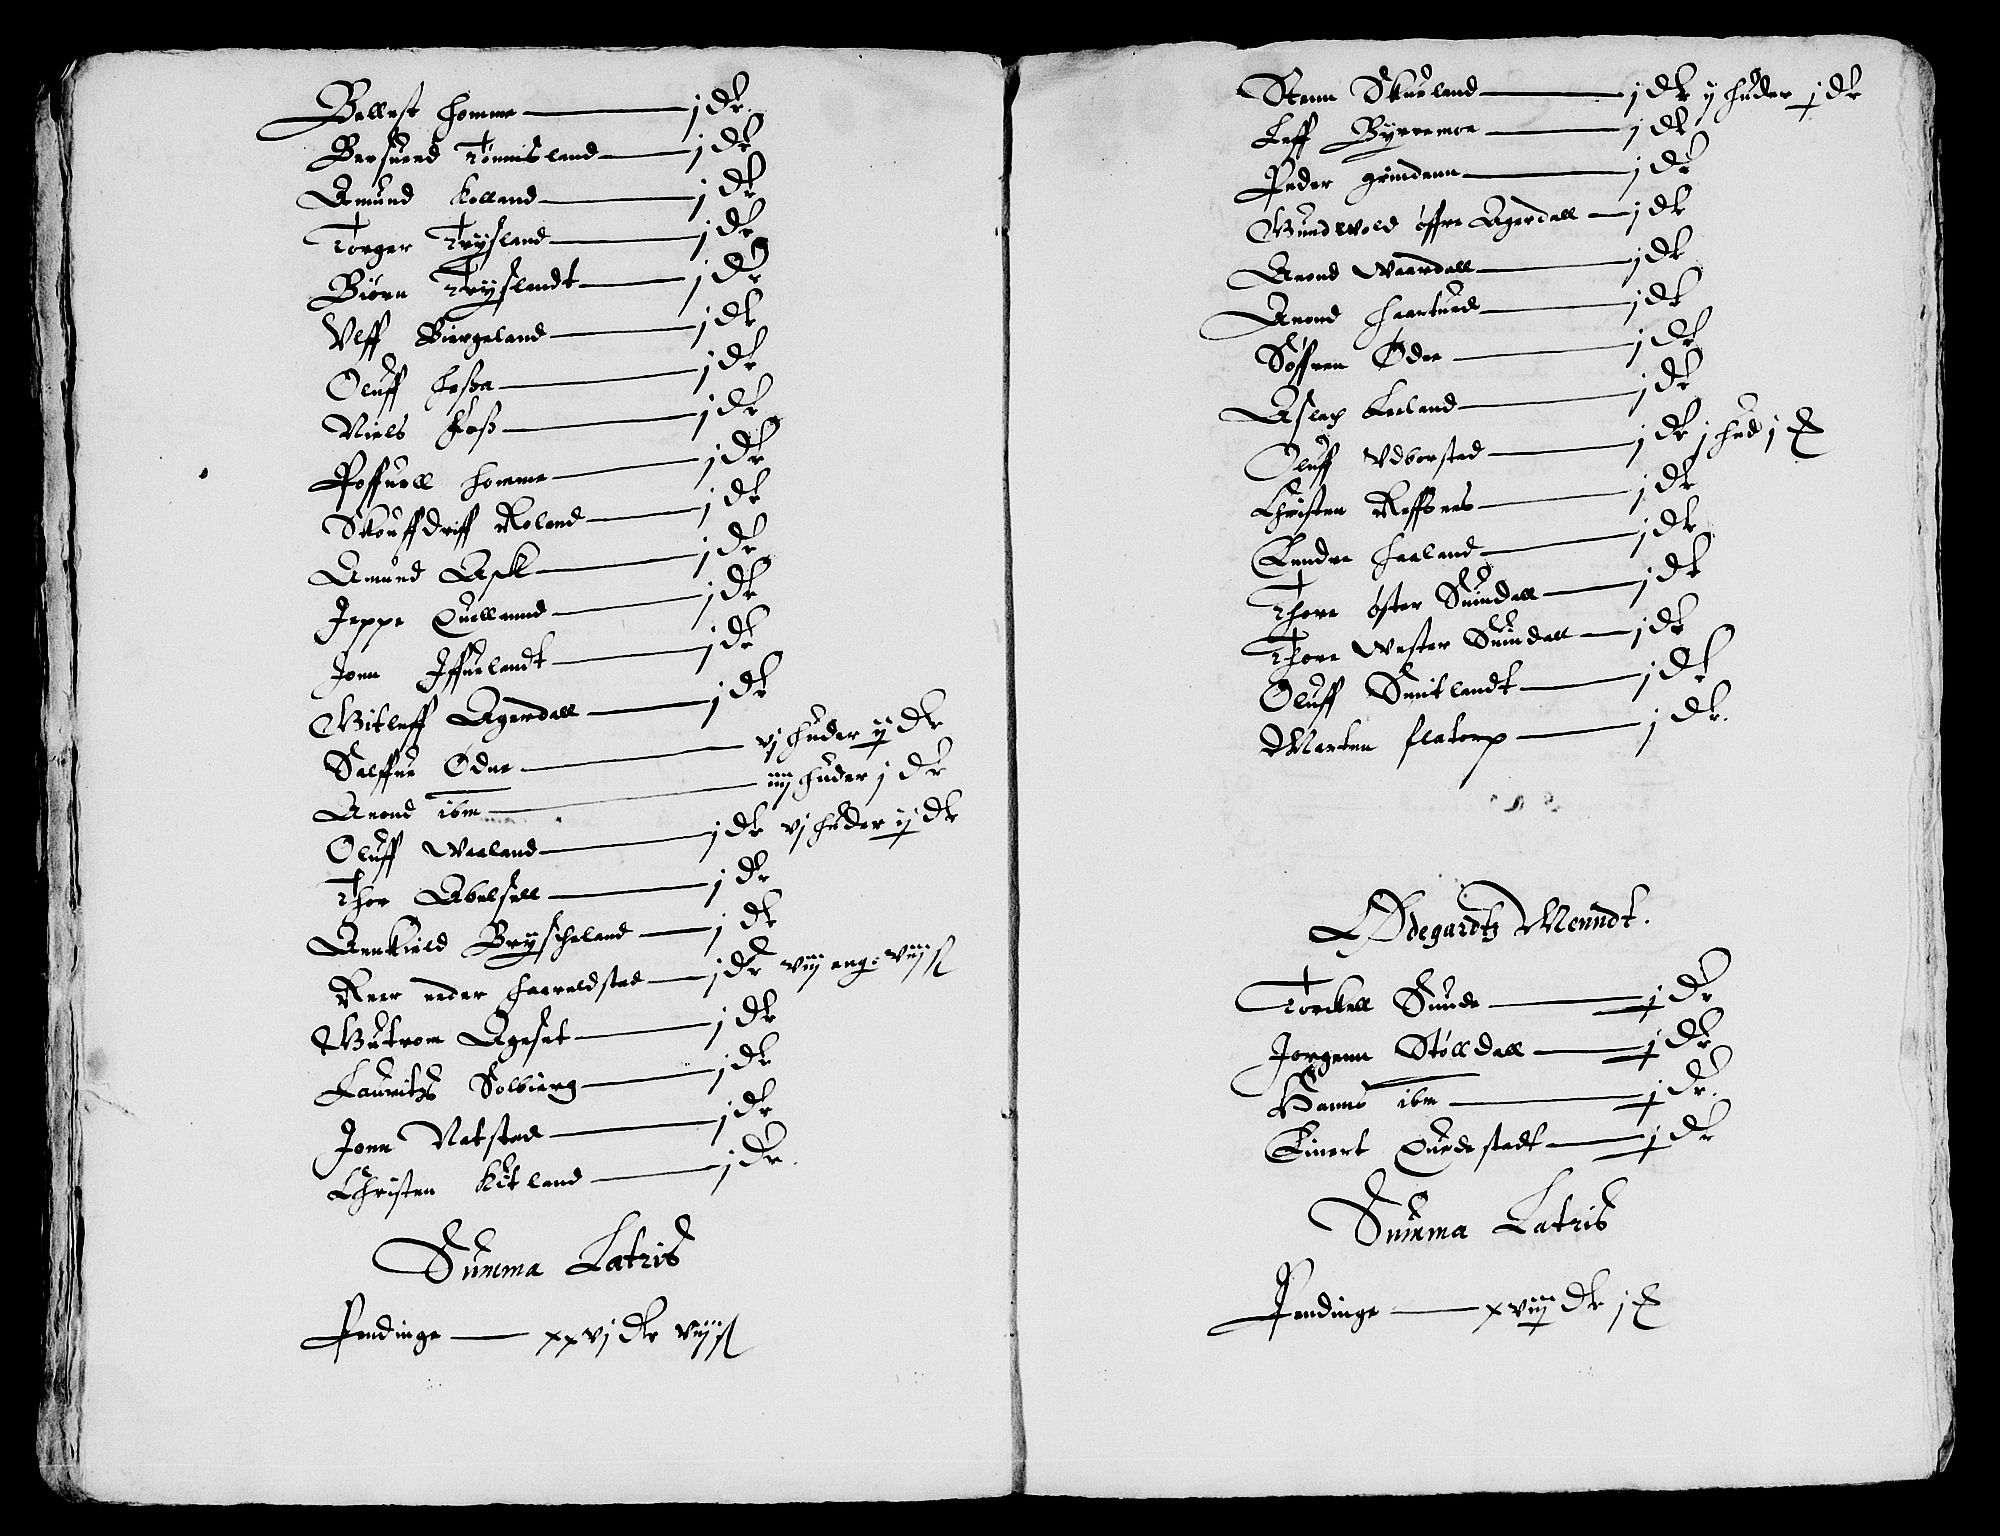 Bellest homme — j dr.
Bersuend Tönnisland — j dr
Amund Kolland — j dr
Torger Trysland — j dr
Biörn Tryslandt — j dr
Vlff Biergeland — j dr
Oluff Foßa — j dr
Niels Foß — j dr
Poffuell homme — j dr
Skouffdriff Roland — j dr
Amund Ask — j dr
Jeppe Quellannd — j dr
Jonn Iffuelandt — j dr
Vitleff Agerdall — j dr
Salffue Ödne — vj huder ij dr
Anond ibm — iiij huder j dr
Oluff Waaland — j dr vj huder ij dr
Thor Abelsell — j dr
Annkield Bryscheland — j dr
Reer neder haareldstad — j dr viij eng: viij ß
Gutrom Ageset — j dr
Lauritz Solbierg — j dr
Jonn Natsted — j dr
Christen Kitland — j dr.
Summa Latris
Pendinge — xxvj dr viij ß
Stenn Skueland — j dr ij huder j dr
Leff Byrremoe — j dr
Peder grindenn — j dr
Gundwold öffre Agerdall — j dr
Anond Waardall — j dr
Anond haartued — j dr
Söffren Ödne — j dr
Aslag Leeland — j dr
Oluff Vdborsted — j dr j hud j
Christen Reffsnes — j dr
Eendre haaland — j dr
Thore öster Suindall — j dr
Thore Wester Suindall — j dr
Oluff Smitlandt — j dr
Marten flatorp — j dr.
Ödegardtz Menndt.
Torckell Sunde — j dr
Jorgenn Stölldall — j dr
Hanns ibm — j dr.
Einert Quedstadt — j dr
Summa Latris
Pendinge — xviij dr j